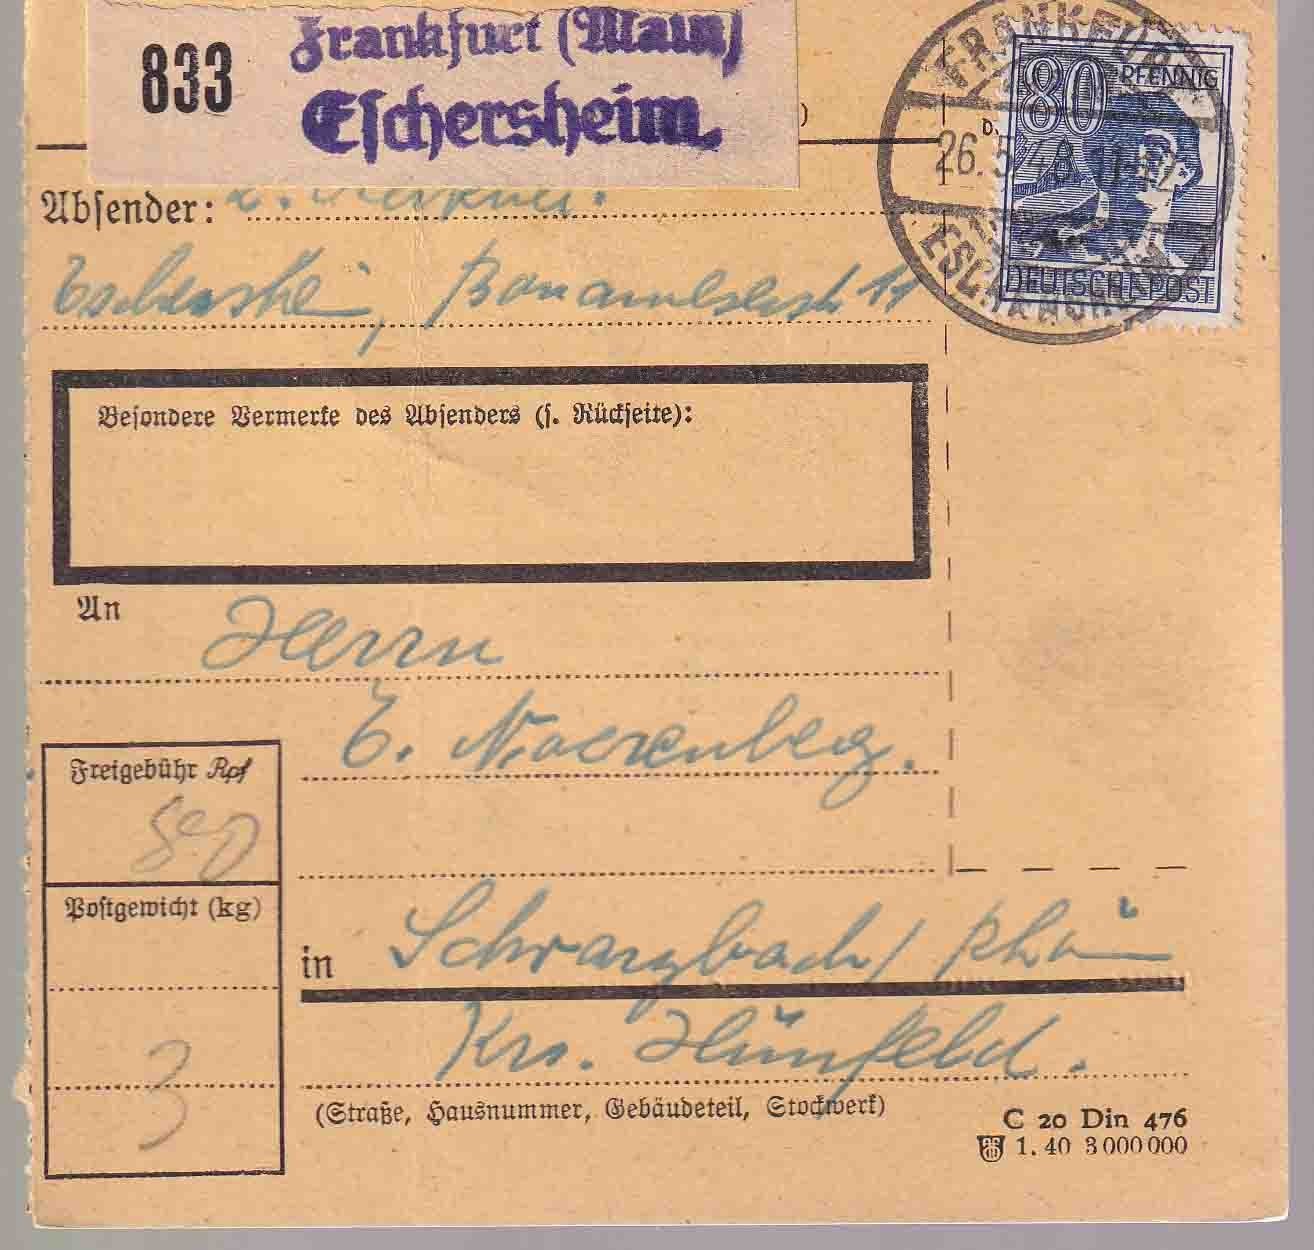 833
Frankfurt (Main)
Eschersheim.
FRANKFURT
80 PFENNIG
26.5.48.
DEUTSCHE POST
Absender:
Besondere Vermerke des Absenders (s. Rückseite):
An
Herrn
E. Noerenberg.
Freigebühr Rpf
80
Postgewicht (kg)
3
in Schwarzbach / Rhön
Krs. Hünfeld.
(Straße, Hausnummer, Gebäudeteil, Stockwerk)
C 20 Din 476
1. 40 3 000 000